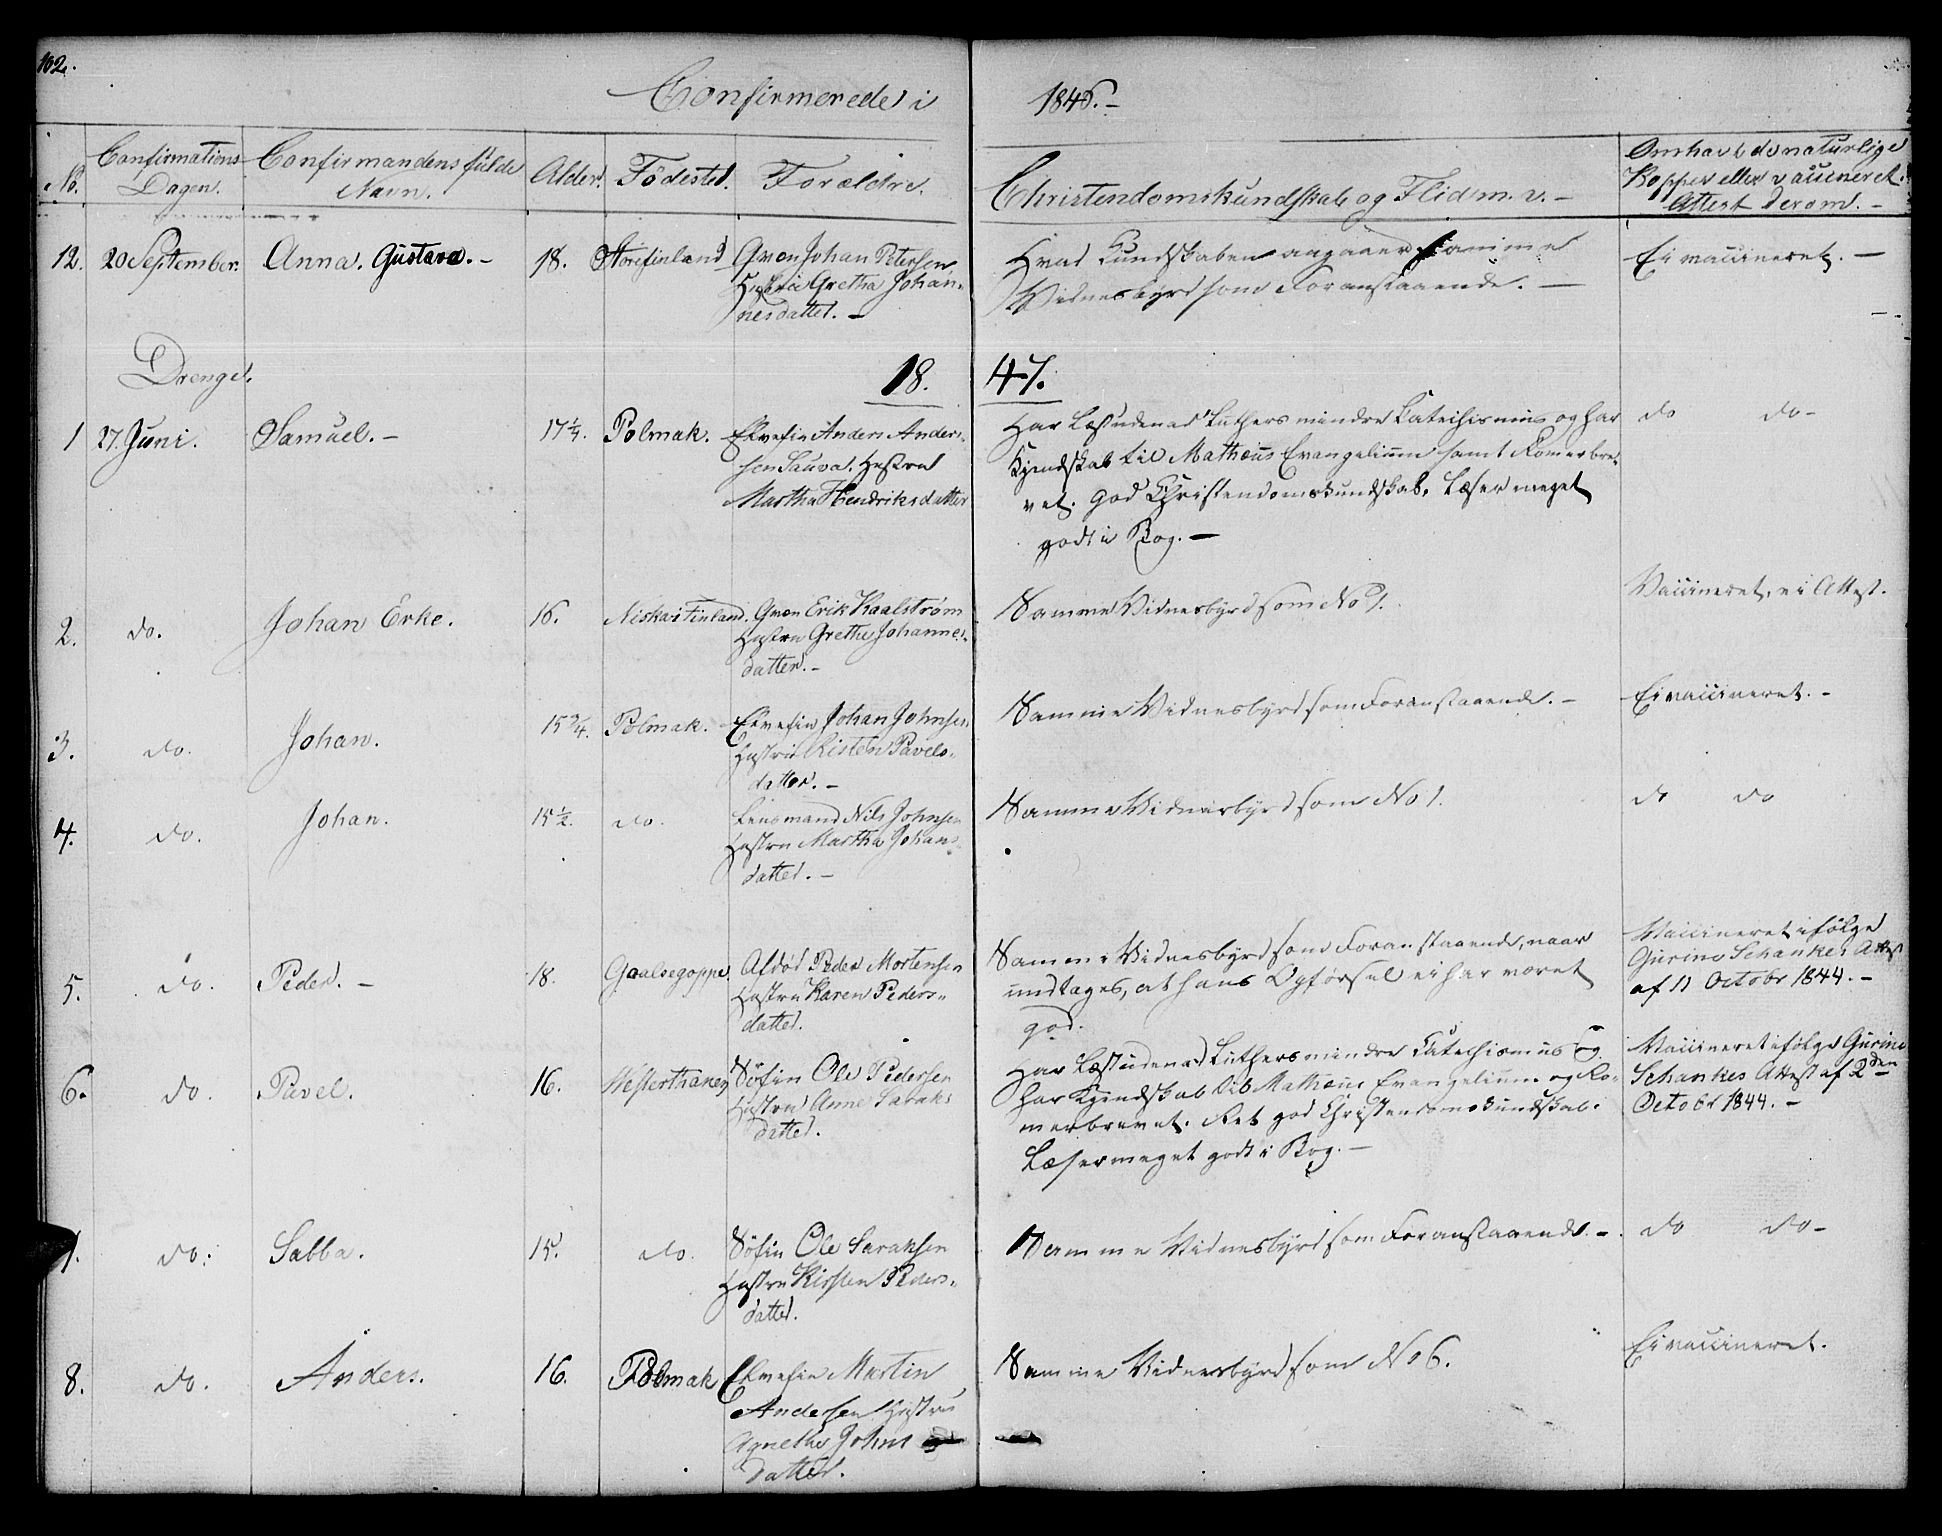 102.
Confirmerede i 1846.-
No.
Confirmations Dagen.
Confirmandens fulde Navn.
Alder.
Födested.
Forældre.
Christendomskundskab og Flid m. v. -
Om havt de naturlige
Kopper eller vaccineret.
Attest derom. -
12. 20 September. Anna. Gustava. - 18. Finland Qvæn Johan Petersen
Hustru Gretha Johan-
nesdatter. -
Hvad Kundskaben angaaer samme
Vidnesbyrd som Foranstaaende. -
Ei vaccineret. -
Drenge.
1847.
1 27. Juni. Samuel. - 17 1/4. Polmak. Elvefin Anders Anders-
sen Sauva. Hustru
Martha Hendriksdatter
Har læst udenad Luthers mindre Catechismus og har
Kjendskab til Mathæus Evangelium samt Romerbre-
vet. God Christendomskundskab. Læser meget
godt i Bog. -
do do-
2. do. Johan Erke. 16. Niska i Finland. Qvæn Erik Kaalstrøm
Hustru Grethe Johannes-
datter. -
Samme Vidnesbyrd som No 1.
Vaccineret, ei Attest.
3. do. Johan. 15 3/4. Polmak. Elvefin Johan Johnsen
Hustru Kisten Pavels-
datter. -
Samme Vidnesbyrd som Foranstaaende. -
Ei vaccineret. -
4. do. Johan. 15 1/2. do. Lensmand Nils Johnsen
Hustru Martha Johans-
datter. -
Samme Vidnesbyrd som No 1.
do do
5. do. Peder. - 18. Gaalsegoppe Afdød Peder Mortensen
Hustru Karen Peders-
datter.
Samme Vidnesbyrd som Foranstaaende, naar
undtages, at hans Opførsel ei har været
god.
Vaccineret ifölge
Gurine Schankes Attest
af 11 Octobr 1844. -
6. do. Pavel. 16. Westerthanen Søfin Ole Pedersen
Hustru Anne Saraks
datter.
Har læst udenad Luthers mindre Catechismus og
har Kjendskab til Mathæus Evangelium og Ro-
merbrevet. Ret god Christendomskundskab.
Læser meget godt i Bog. -
Vaccineret ifølge Gurine
Schankes Attest af 2den
Octobr 1844. -
7. do. Sabba. 15. do. Søfin Ole Saraksen
Hustru Kirsten Peders-
datter.
Samme Vidnesbyrd som Foranstaaende. -
do do-
8. do. Anders. 16. Polmak Elvefin Martin
Andersen Hustru
Agnethe Johns
datter.
Samme Vidnesbyrd som No 6.
Ei vaccineret.